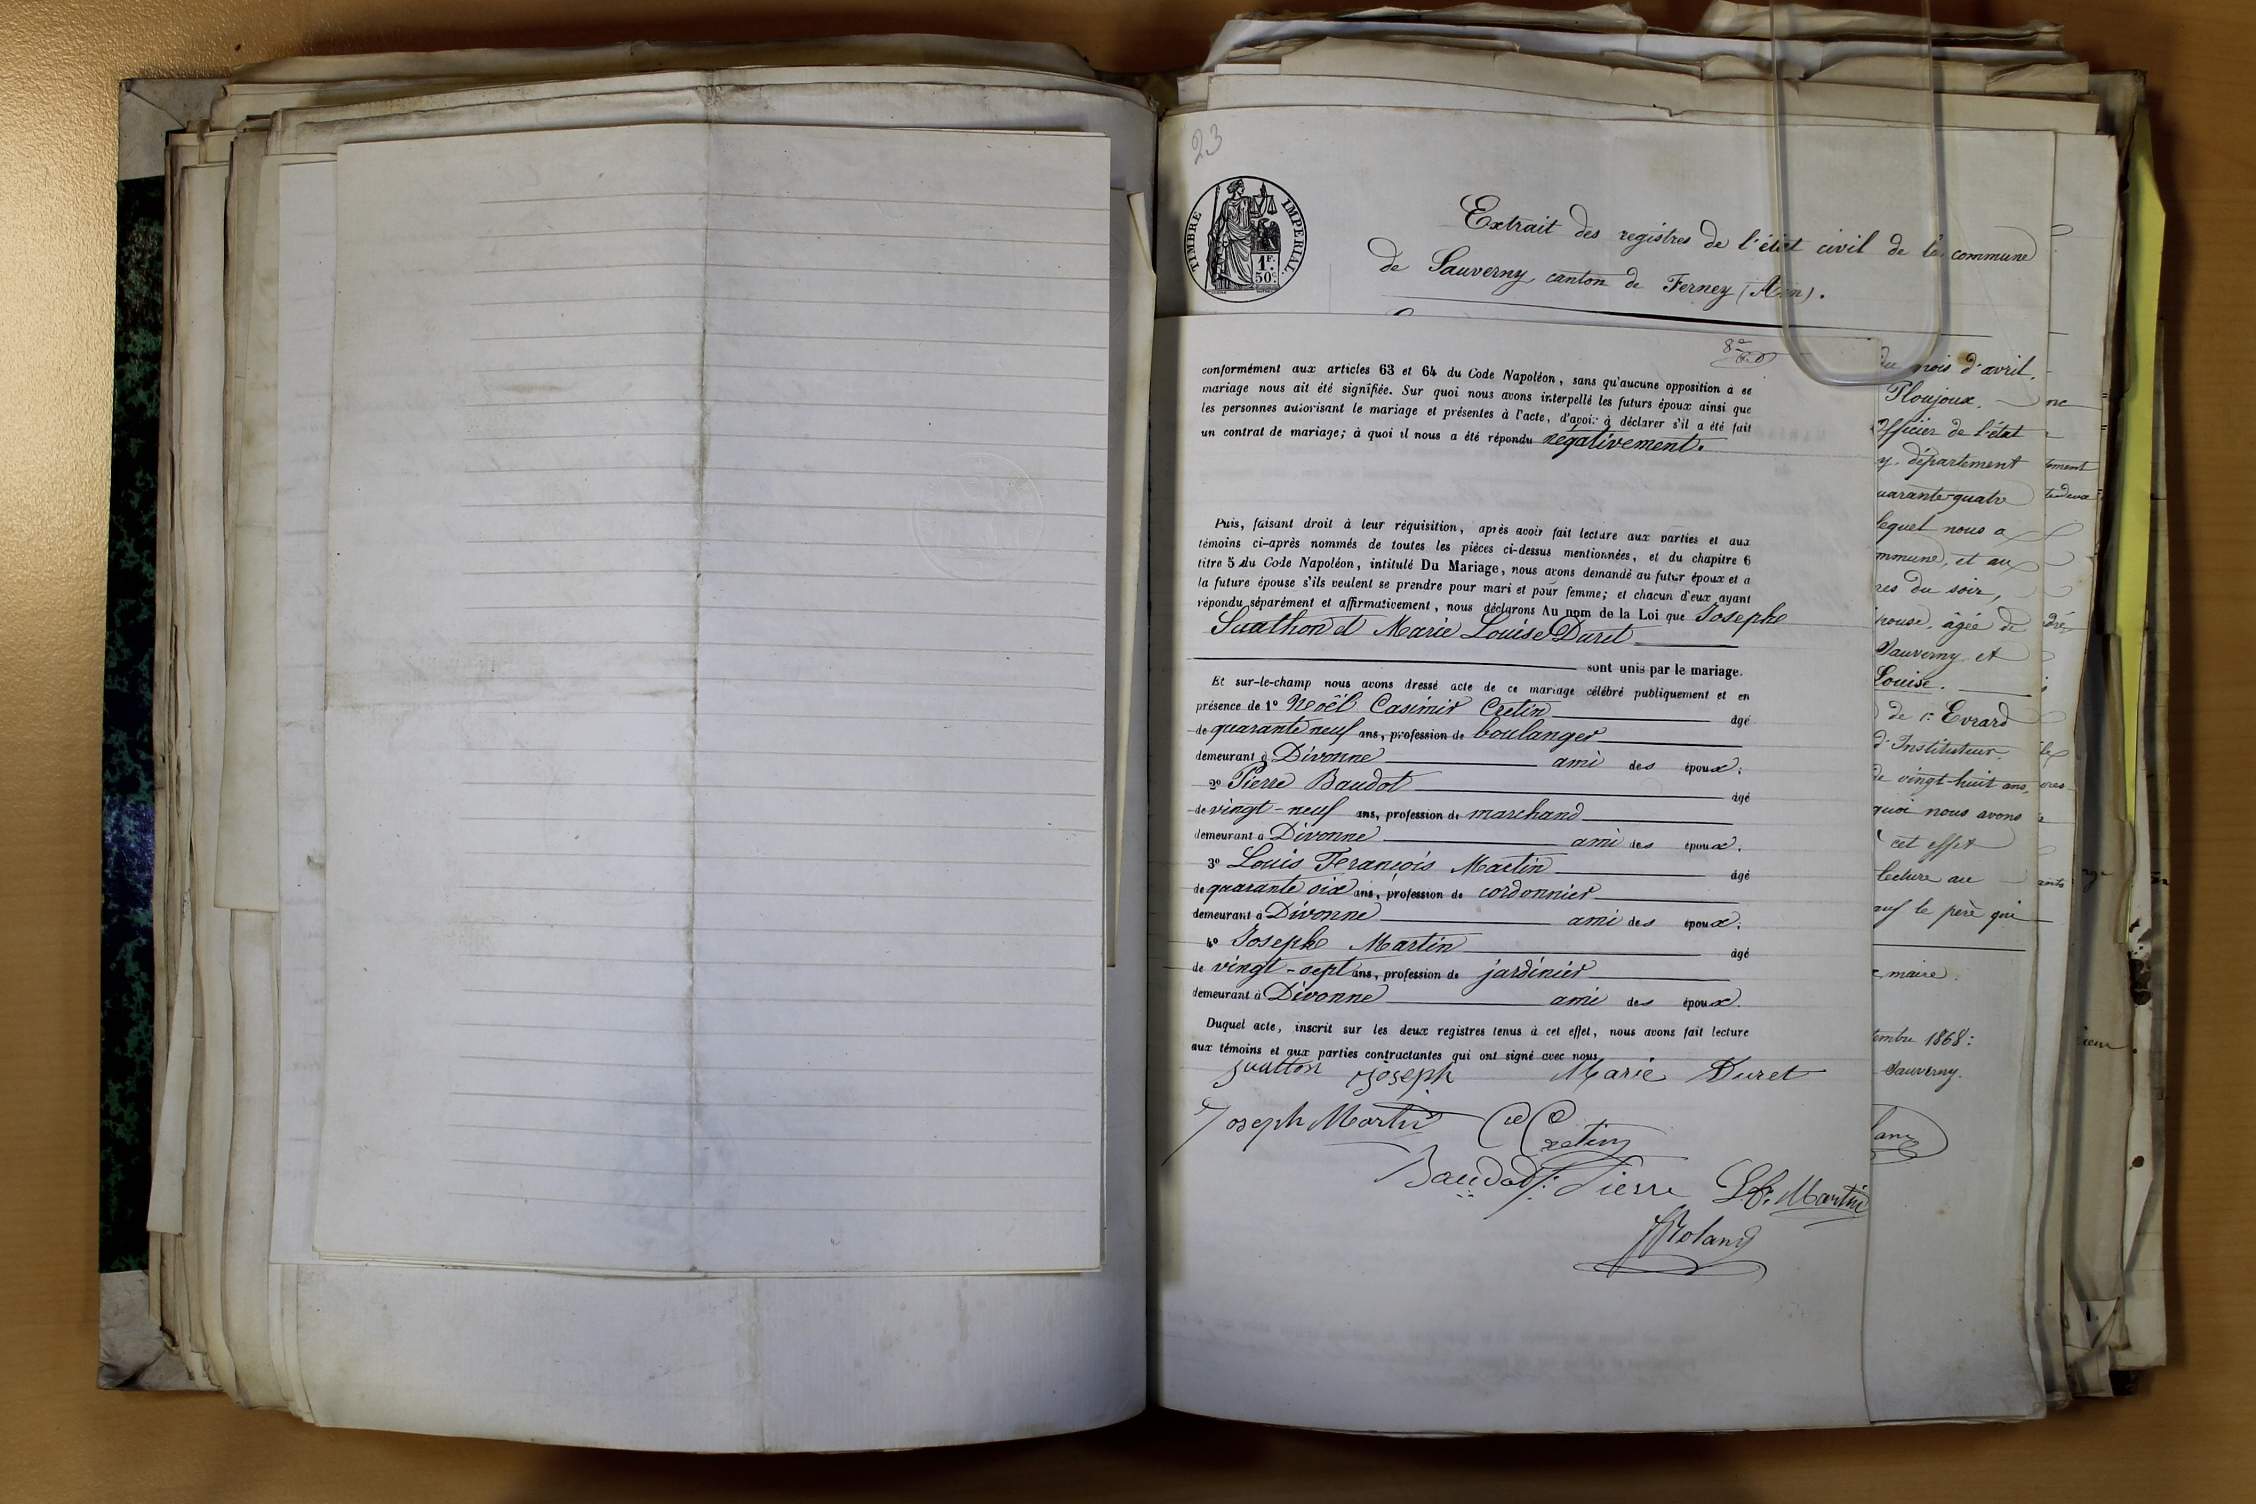 23
TIMBRE IMPERIAL
1F.
50c.
Extrait des registres de l'état civil de la commune
de Sauverny canton de Ferney (Ain).
8e
conformément aux articles 63 et 64 du Code Napoléon, sans qu'aucune opposition à ce
mariage nous ait été signifiée. Sur quoi nous avons interpellé les futurs époux ainsi que
les personnes autorisant le mariage et présentes à l'acte, d'avoir à déclarer s'il a été fait
un contrat de mariage; à quoi il nous a été répondu négativement.
Puis, faisant droit à leur réquisition, après avoir fait lecture aux parties et aux
témoins ci-après nommés de toutes les pièces ci-dessus mentionnées, et du chapitre 6
titre 5 du Code Napoléon, intitulé Du Mariage, nous avons demandé au futur époux et a
la future épouse s'ils veulent se prendre pour mari et pour femme; et chacun d'eux ayant
répondu séparément et affirmativement, nous déclarons Au nom de la Loi que Joseph
Suathon et Marie Louise Duret
sont unis par le mariage.
Et sur-le-champ nous avons dressé acte de ce mariage célébré publiquement et en
présence de 1º Noël Casimir Cretin âgé
de quarante neuf ans, profession de boulanger
demeurant à Divonne ami des époux;
2º Pierre Baudot âgé
de vingt-neuf ans, profession de marchand
demeurant a Divonne ami des époux.
3º Louis François Martin âgé
de quarante six ans, profession de cordonnier
demeurant à Divonne ami des époux;
4º Joseph Martin âgé
de vingt-sept ans, profession de jardinier
demeurant à Divonne ami des époux.
Duquel acte, inscrit sur les deux registres tenus à cet effet, nous avons fait lecture
aux témoins et aux parties contractantes qui ont signé avec nous
Suatton Joseph Marie Duret
Joseph Martin Cretin
Baudot Pierre L. F. Martin
Roland
du mois d'avril.
Ploujoux.
officier de l'état
y. département
uarante-quatre
lequel nous a
mmune, et au
res du soir,
pouse, âgée de
Sauverny et
Louise.
de 1º Evrard
d'Instituteur.
de vingt-huit ans,
quoi nous avons
cet effet
lecture au
auf le père qui
maire.
tembre 1868:
Sauverny.